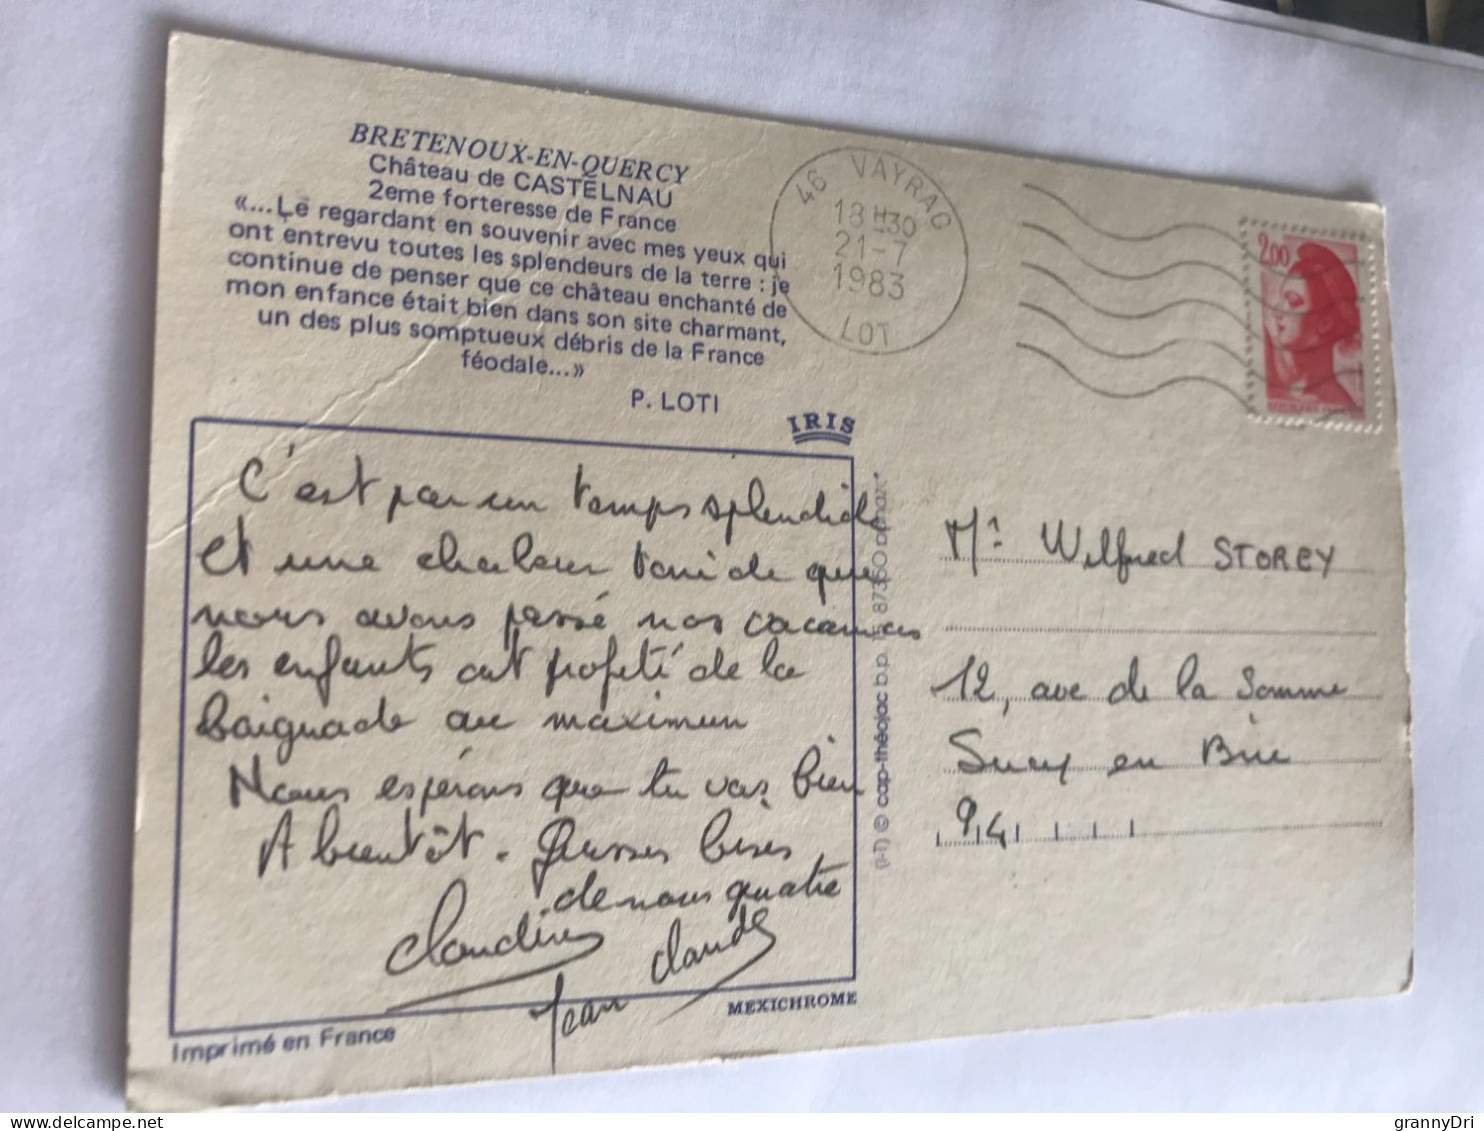 BRETENOUX-EN-QUERCY
Château de CASTELNAU
2eme forteresse de France
«...Le regardant en souvenir avec mes yeux qui
ont entrevu toutes les splendeurs de la terre : je
continue de penser que ce château enchanté de
mon enfance était bien dans son site charmant,
un des plus somptueux débris de la France
féodale...»
P. LOTI
IRIS
46 VAYRAC
18H30
21-7
1983
LOT
2,00
C'est par un temps splendide
et une chaleur torride que
nous avons passé nos vacances
les enfants ont profité de la
baignade au maximum
Nous espérons que tu vas bien
A bientôt. Grosses bises
de nous quatre
Claudine
Jean Claude
MEXICHROME
Imprimé en France
(I-1) © cap-théojac b.p. 87350 panazol
Mr Wilfred STOREY
12, ave de la Somme
Sucy en Brie
94
grannyDri